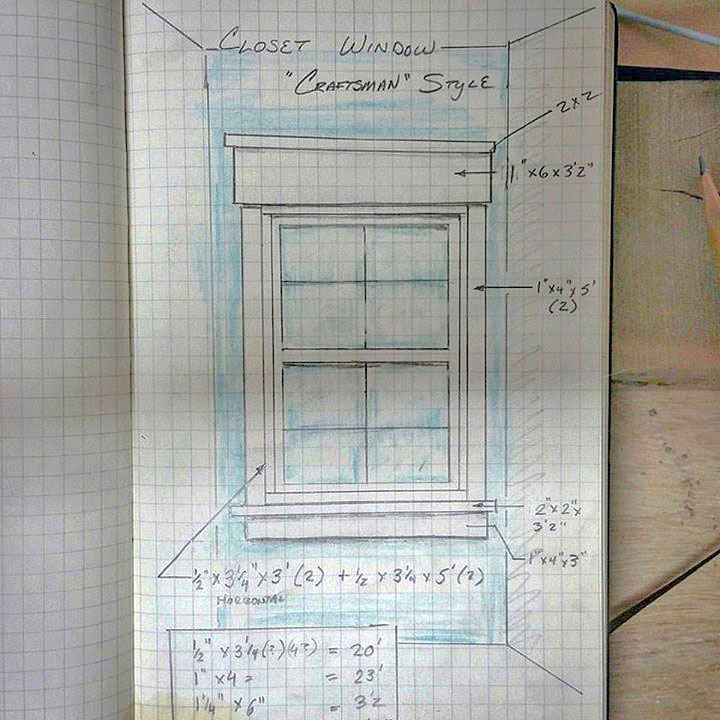 CLOSET WINDOW
"CRAFTSMAN" STYLE
2x2
1"x6x3'2"
1"x4"x5'
(2)
2"x2"x
3'2"
1"x4"x3"
½"x3¼"x3'(2) + ½ x 3¼ x 5'(2)
HORIZONTAL
½" x 3¼ = 20'
1" x4 = = 23'
1¼" x 6" = 3'2